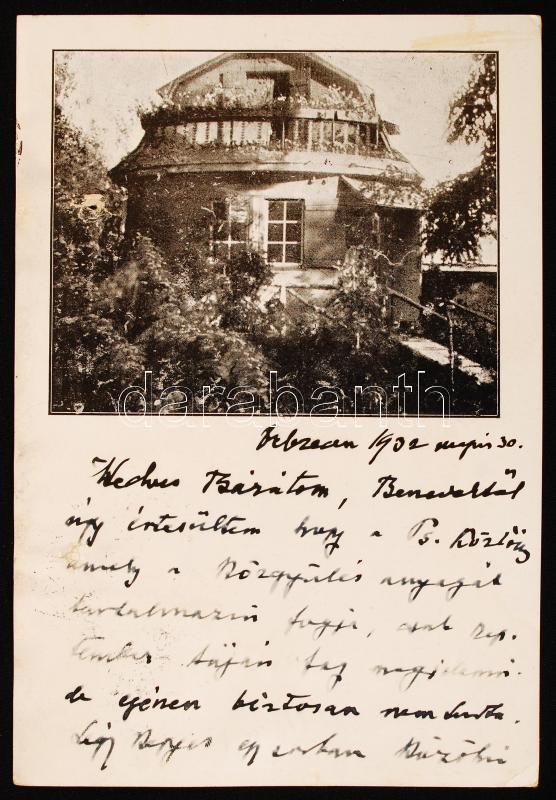 darabanth
Debrecen 1932 május 30.
Kedves Barátom, Benedektől
úgy értesültem hogy a Ps. Közlöny
amely a Közgyűlés anyagát
tartalmazni fogja, csak szep-
tember táján fog megjelenni.
de egészen biztosan nem tudta.
Légy kegyes egy sorban közölni